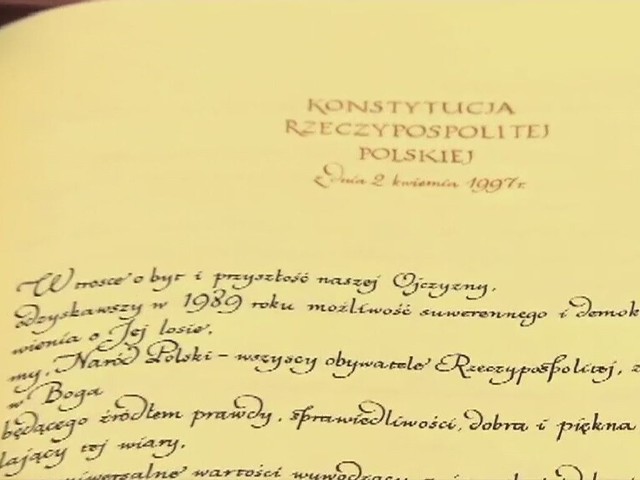 KONSTYTUCJA
RZECZYPOSPOLITEJ
POLSKIEJ
z dnia 2 kwietnia 1997 r.
W trosce o byt i przyszłość naszej Ojczyzny,
odzyskawszy w 1989 roku możliwość suwerennego i demok
wienia o Jej losie,
my, Naród Polski – wszyscy obywatele Rzeczypospolitej, z
w Boga
będącego źródłem prawdy, sprawiedliwości, dobra i piękna
lający tej wiary,
niwersalne wartości